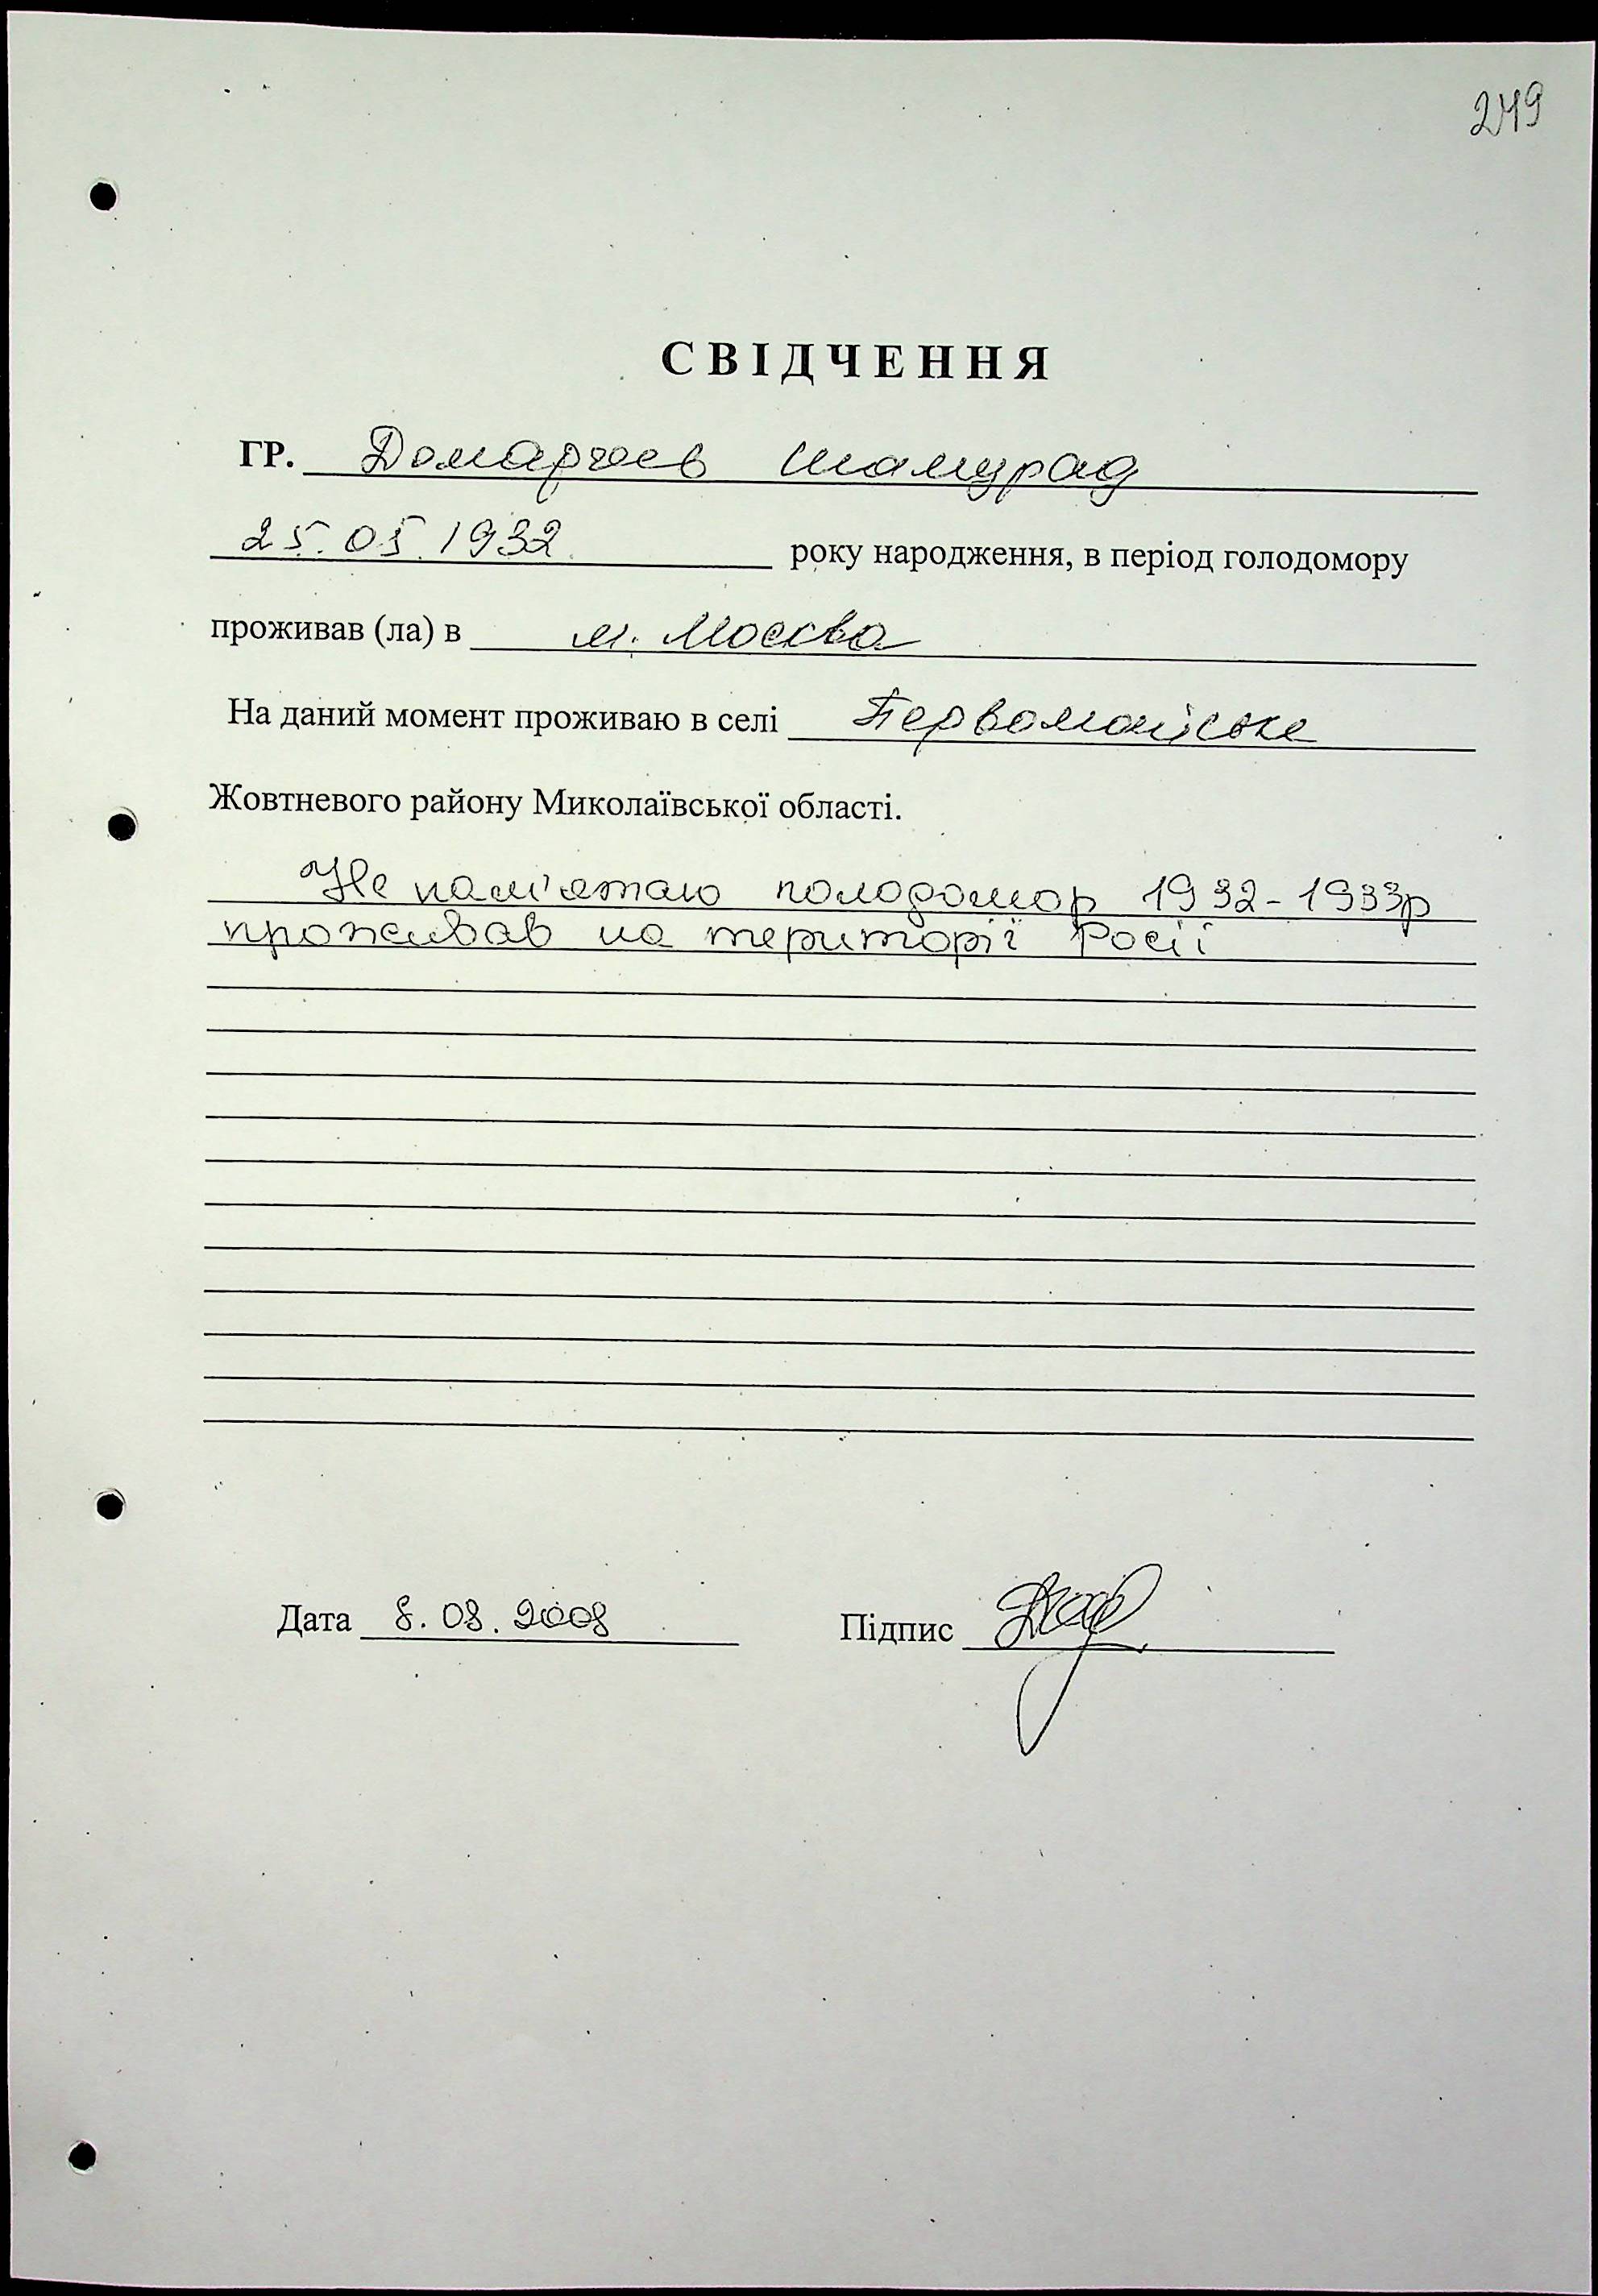 249
СВІДЧЕННЯ
ГР. Шамурад
25.05.1932 року народження, в період голодомору
проживав (ла) в м. Москва
На даний момент проживаю в селі Первомайське
Жовтневого району Миколаївської області.
Не пам'ятаю голодомор 1932-1933р
проживав на території Росії
Дата 8.08.2008 Підпис